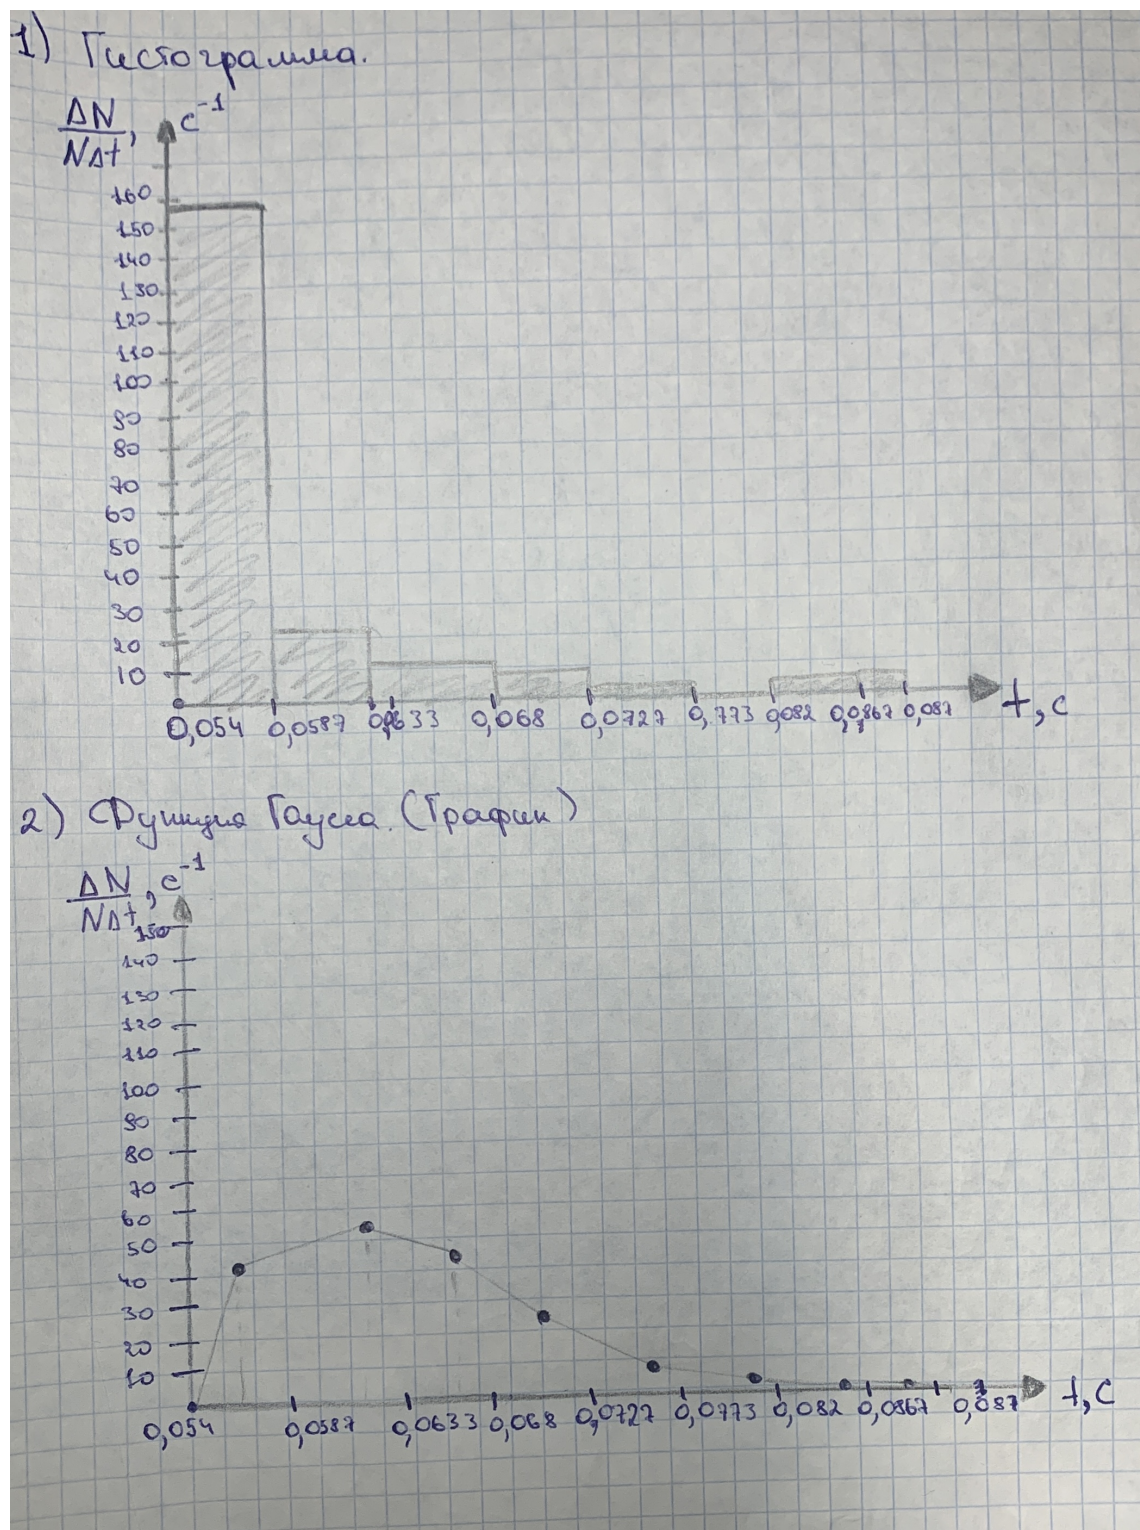 1) Гистограмма.
ΔN/NΔt, с⁻¹
160
150
140
130
120
110
100
90
80
70
60
50
40
30
20
10
0,054 0,0587 0,0633 0,068 0,0727 0,773 0,082 0,0867 0,087 t, с
2) Функция Гаусса. (График)
ΔN/NΔt, с⁻¹
150
140
130
120
110
100
90
80
70
60
50
40
30
20
10
0,054 0,0587 0,0633 0,068 0,0727 0,0773 0,082 0,0867 0,087 t, с